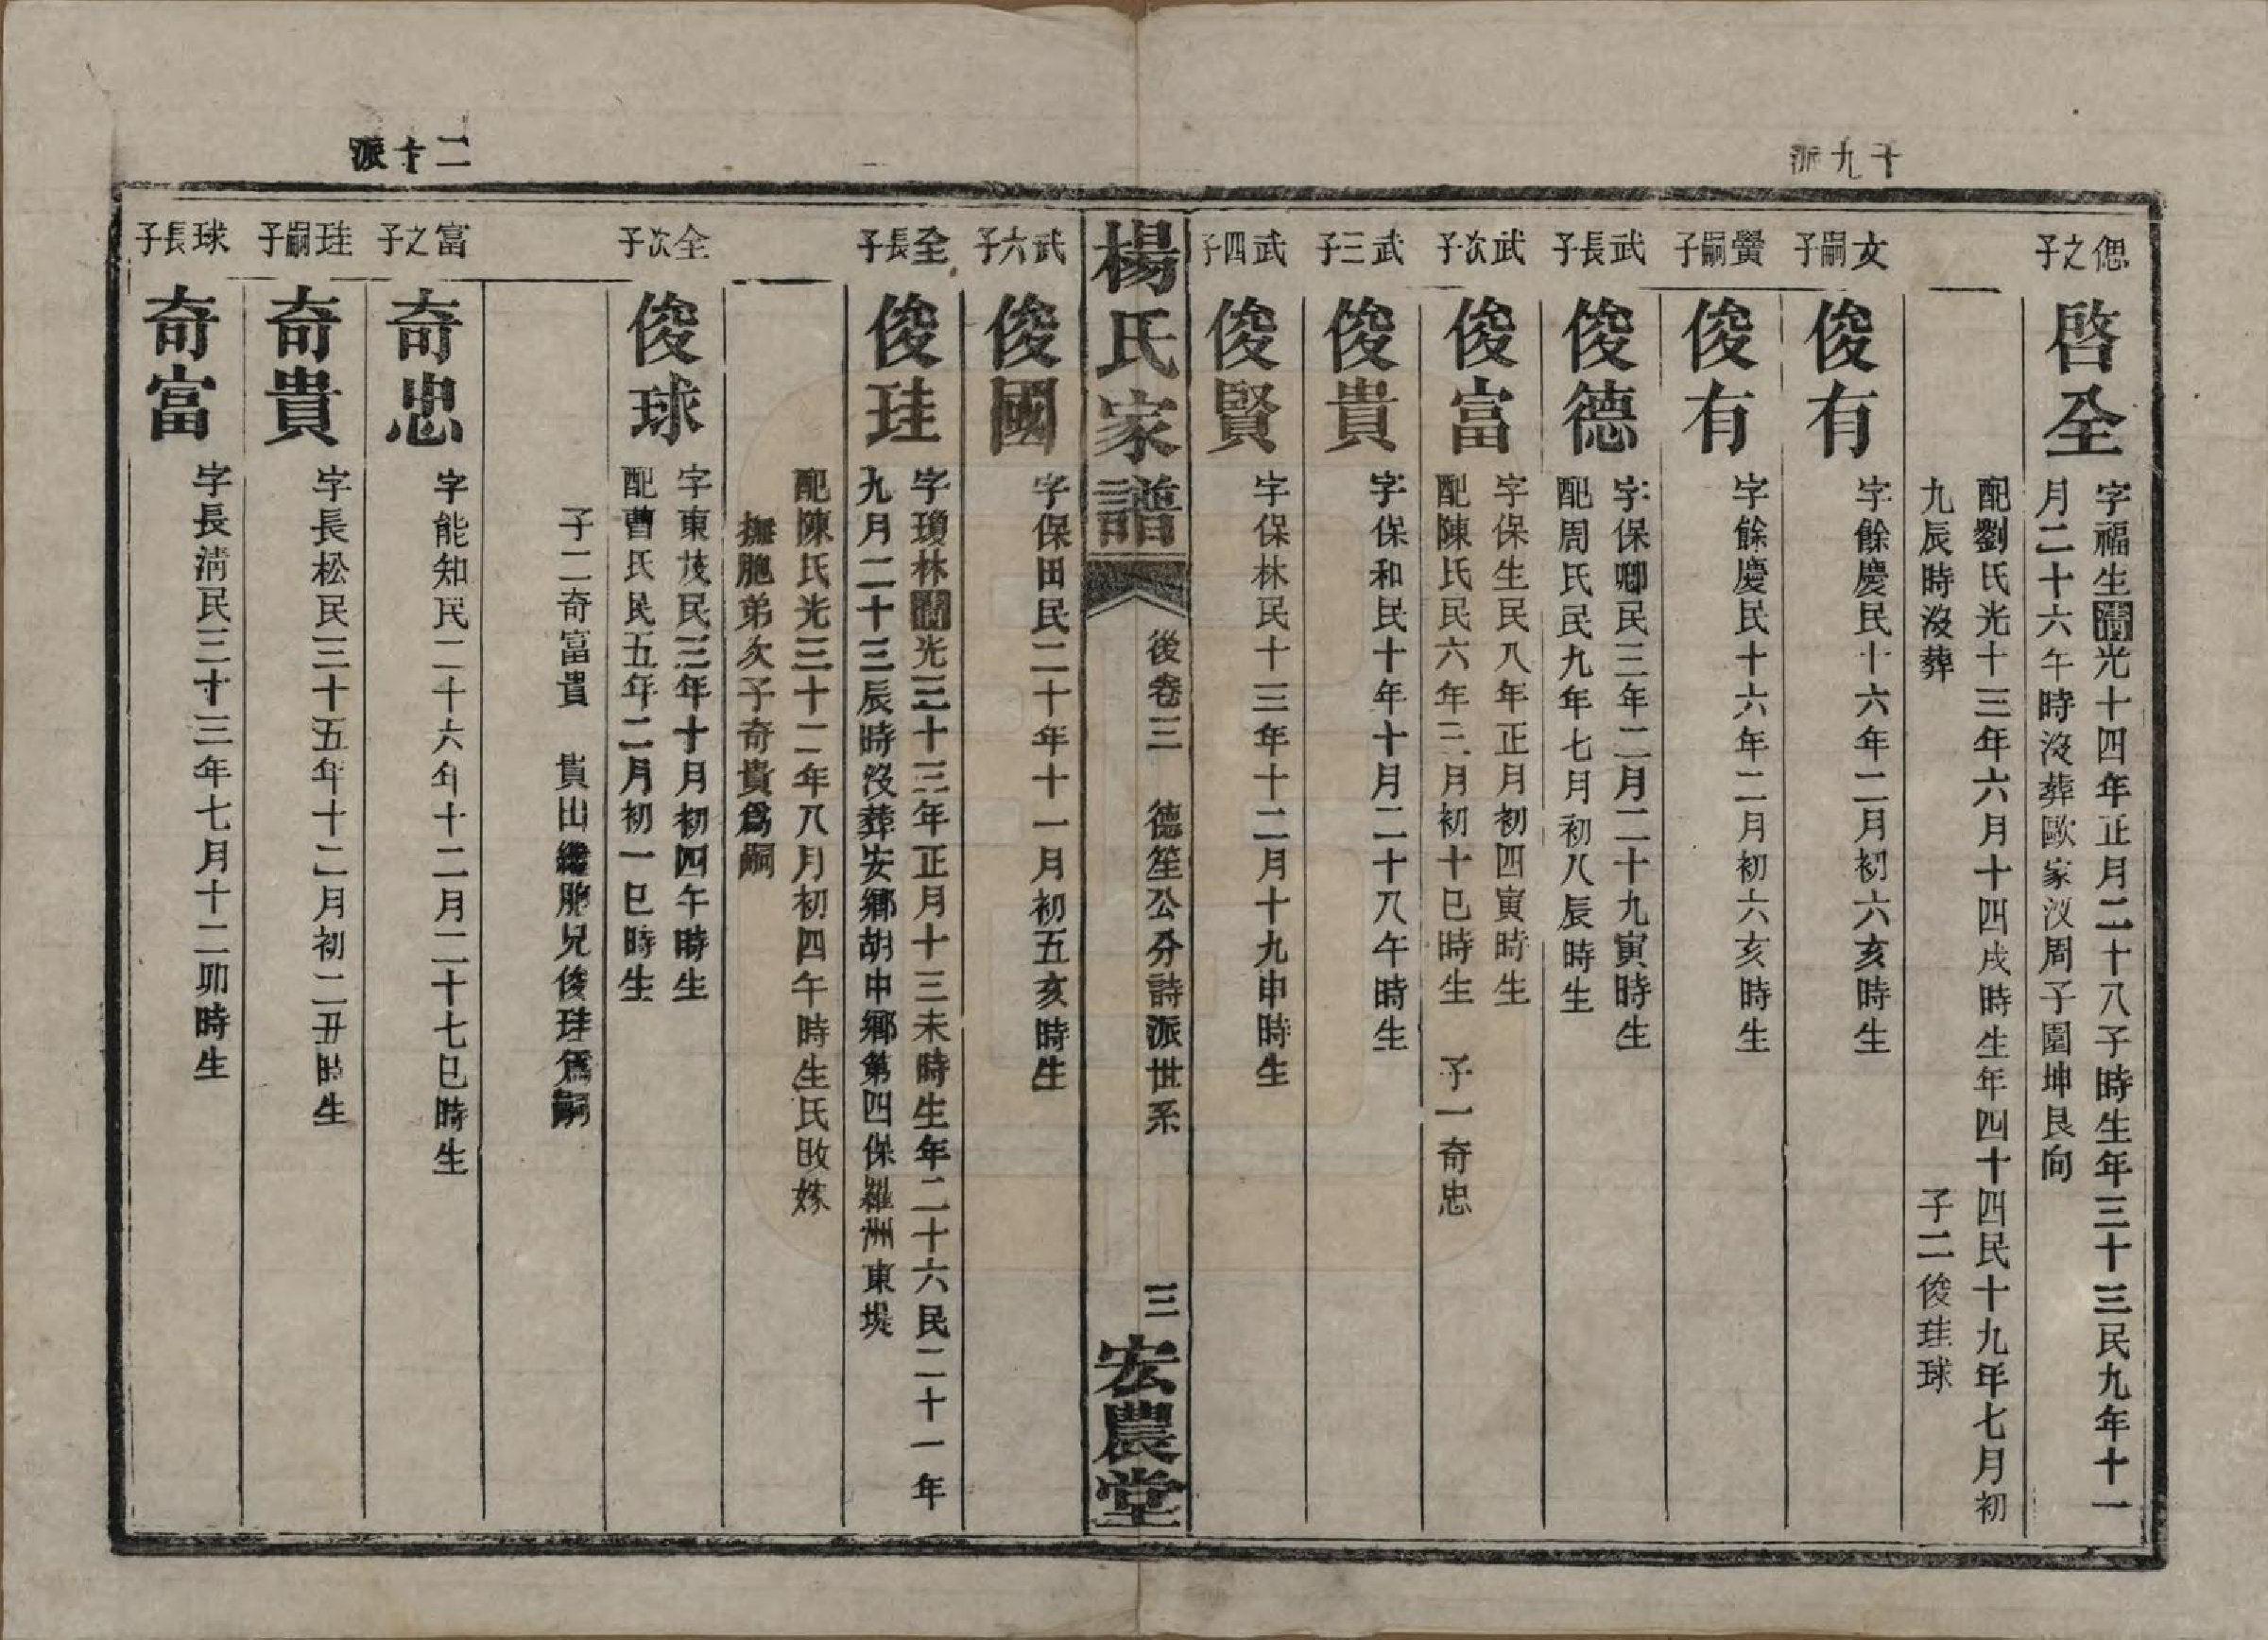 十九派
偲之子
啓全
字福生清光十四年正月二十八子時生年三十三民九年十一
月二十六午時沒葬歐家汊周子園坤艮向
配劉氏光十三年六月十四戌時生年四十四民十九年七月初
九辰時沒葬
子二俊珪球
文嗣子
俊有
字餘慶民十六年二月初六亥時生
黌嗣子
俊有
字餘慶民十六年二月初六亥時生
武長子
俊德
字保卿民三年二月二十九寅時生
配周氏民九年七月初八辰時生
武次子
俊富
字保生民八年正月初四寅時生
配陳氏民六年三月初十巳時生 子一奇忠
武三子
俊貴
字保和民十年十月二十八午時生
武四子
俊賢
字保林民十三年十二月十九申時生
楊氏家譜
後卷三 德笙公分詩派世系
三
宏農堂
武六子
俊國
字保田民二十年十一月初五亥時生
全長子
俊珪
字瓊林清光三十三年正月十三未時生年二十六民二十一年
九月二十三辰時沒葬安鄉胡中鄉第四保羅洲東堤
配陳氏光三十二年八月初四午時生氏改嫁
撫胞弟次子奇貴爲嗣
全次子
俊球
字東茂民三年十月初四午時生
配曹氏民五年二月初一巳時生
子二奇富貴 貴出繼胞兄俊珪爲嗣
二十派
富之子
奇忠
字能知民二十六年十二月二十七巳時生
珪嗣子
奇貴
字長松民三十五年十二月初二丑時生
球長子
奇富
字長清民三十三年七月十二卯時生